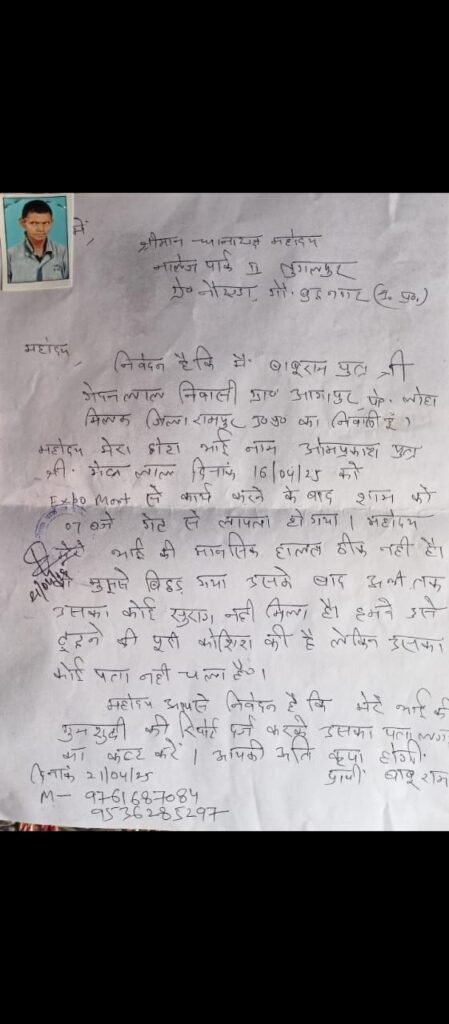 में,
श्रीमान थानाध्यक्ष महोदय
नालेज पार्क तुगलपुर
ग्रे० नौएडा, गौ. बुद्ध नगर (उ. प्र.)
महोदय,
निवेदन है कि मैं बाबूराम पुत्र श्री
गेंदन लाल निवासी ग्राम आगापुर पो. लोहा
मिलक जिला रामपुर उ०प्र० का निवासी हूँ।
महोदय मेरा छोटा भाई नाम ओमप्रकाश पुत्र
श्री. लाल दिनांक 16/04/25 को
Expo Mart से कार्य करने के बाद शाम को
07 बजे गेट से लापता हो गया। महोदय
मेरे भाई की मानसिक हालत ठीक नहीं है।
मुझसे बिछड़ गया उसके बाद अभी तक
उसका कोई सुराग नही मिला है। हमने उसे
ढूंढने की पूरी कोशिश की है लेकिन उसका
कोई पता नही चला है।
महोदय आपसे निवेदन है कि मेरे भाई की
गुमशुदी की रिपोर्ट दर्ज करके उसका पता
का कष्ट करें। आपकी अति कृपा होगी
दिनांक 21/04/25 प्रार्थी बाबू राम
M- 9761687084
9536285297
21/04/25